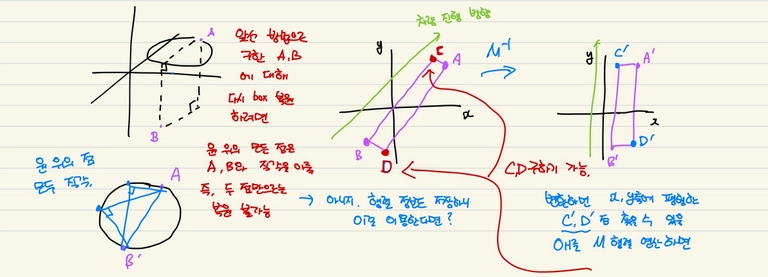 A
앞선 방법으로
구한 A,B
에 대해
다시 box 복원
하려면
B
원 위의 점
모두 직각.
A
B'
원 위의 모든 점은
A, B와 직각을 이룸
즉, 두 점만으로는
복원 불가능
→ 아하지. 행렬 정보도 저장해서
이걸 이용한다면?
차량 진행 방향
y
C
A
x
B
D
M⁻¹
C,D 구하기 가능.
y
C'
A'
x
B'
D'
변환하면 x,y축에 평행한
C', D'을 찾을 수 있음
여기로 M 행렬 연산하면